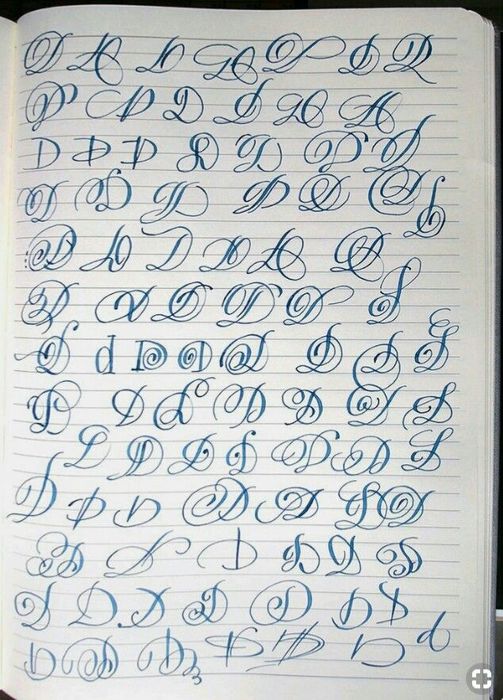 D D D D D D D
D D D D D D
D D D D D D D
D D D D D D D
D D D D D D
D D D D D D
D d D D D D D D
D D D D D D D
D D D D D D D
D D D D D D D
D D D D D D
D D D D D D D
D D D D D D d